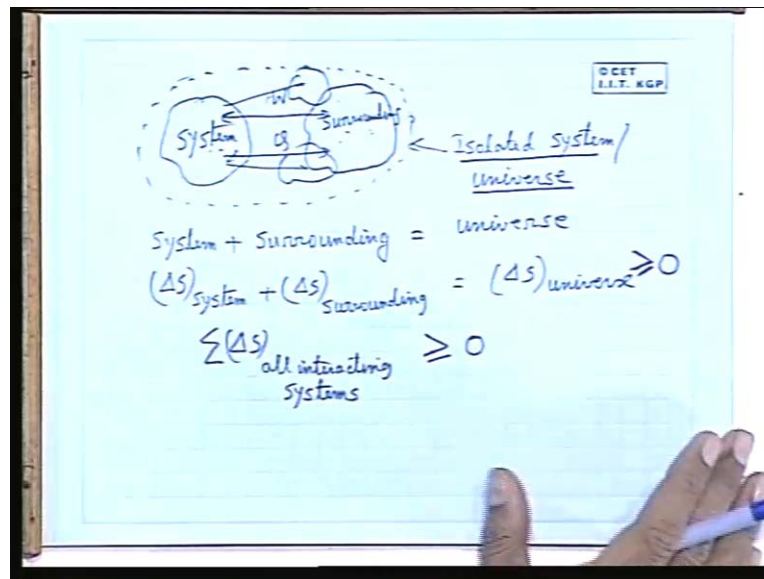 © CET
I.I.T. KGP
W
System
Surrounding
Q
Isolated System/
universe
System + Surrounding = universe
(ΔS)system + (ΔS)surrounding = (ΔS)universe ≥ 0
Σ(ΔS)all interacting systems ≥ 0